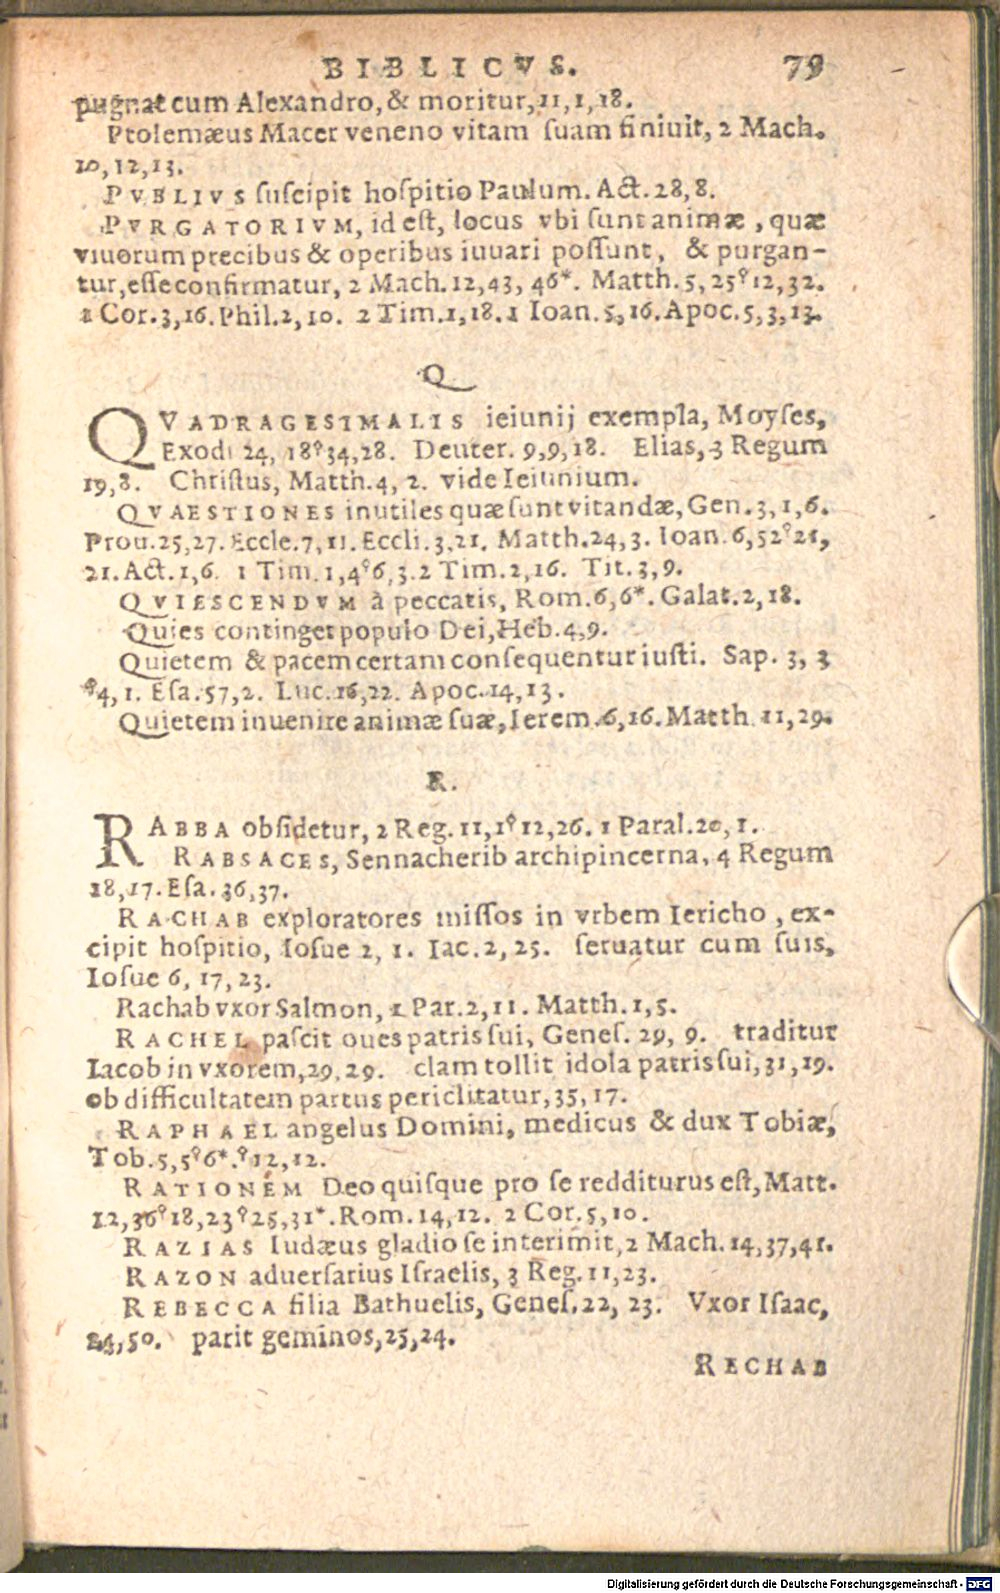 BIBLICVS. 79
pugnat cum Alexandro, & moritur, 11, 1, 18.
Ptolemæus Macer veneno vitam ſuam finiuit, 2 Mach.
10, 12, 13.
PVBLIVS ſuſcipit hoſpitio Paulum. Act. 28, 8.
PVRGATORIVM, id eſt, locus vbi ſunt animæ, quæ
viuorum precibus & operibus iuuari poſſunt, & purgan-
tur, eſſe confirmatur, 2 Mach. 12, 43, 46*. Matth. 5, 25 ⁊ 12, 32.
1 Cor. 3, 16. Phil. 2, 10. 2 Tim. 1, 18. 1 Ioan. 5, 16. Apoc. 5, 3, 13.
Q
QVADRAGESIMALIS ieiunij exempla, Moyſes,
Exodi 24, 18 ⁊ 34, 28. Deuter. 9, 9, 18. Elias, 3 Regum
19, 8. Chriſtus, Matth. 4, 2. vide Ieiunium.
QVAESTIONES inutiles quæ ſunt vitandæ, Gen. 3, 1, 6.
Prou. 25, 27. Eccle. 7, 11. Eccli. 3, 21. Matth. 24, 3. Ioan. 6, 52 ⁊ 21,
21. Act. 1, 6. 1 Tim. 1, 4 ⁊ 6, 3. 2 Tim. 2, 16. Tit. 3, 9.
QVIESCENDVM à peccatis, Rom. 6, 6*. Galat. 2, 18.
Quies continget populo Dei, Heb. 4, 9.
Quietem & pacem certam conſequentur iuſti. Sap. 3, 3
⁊ 4, 1. Eſa. 57, 2. Luc. 16, 22. Apoc. 14, 13.
Quietem inuenire animæ ſuæ, Ierem. 6, 16. Matth. 11, 29.
R.
RABBA obſidetur, 2 Reg. 11, 1 ⁊ 12, 26. 1 Paral. 20, 1.
RABSACES, Sennacherib archipincerna, 4 Regum
18, 17. Eſa. 36, 37.
RACHAB exploratores miſſos in vrbem Iericho, ex-
cipit hoſpitio, Ioſue 2, 1. Iac. 2, 25. ſeruatur cum ſuis,
Ioſue 6, 17, 23.
Rachab vxor Salmon, 1 Par. 2, 11. Matth. 1, 5.
RACHEL paſcit oues patris ſui, Geneſ. 29, 9. traditur
Iacob in vxorem, 29, 29. clam tollit idola patris ſui, 31, 19.
ob difficultatem partus periclitatur, 35, 17.
RAPHAEL angelus Domini, medicus & dux Tobiæ,
Tob. 5, 5 ⁊ 6*. ⁊ 12, 12.
RATIONEM Deo quiſque pro ſe redditurus eſt, Matt.
12, 36 ⁊ 18, 23 ⁊ 25, 31*. Rom. 14, 12. 2 Cor. 5, 10.
RAZIAS Iudæus gladio ſe interimit, 2 Mach. 14, 37, 41.
RAZON aduerſarius Iſraelis, 3 Reg. 11, 23.
REBECCA filia Bathuelis, Geneſ. 22, 23. Vxor Iſaac,
24, 50. parit geminos, 25, 24.
RECHAB
Digitalisierung gefördert durch die Deutsche Forschungsgemeinschaft - DFG